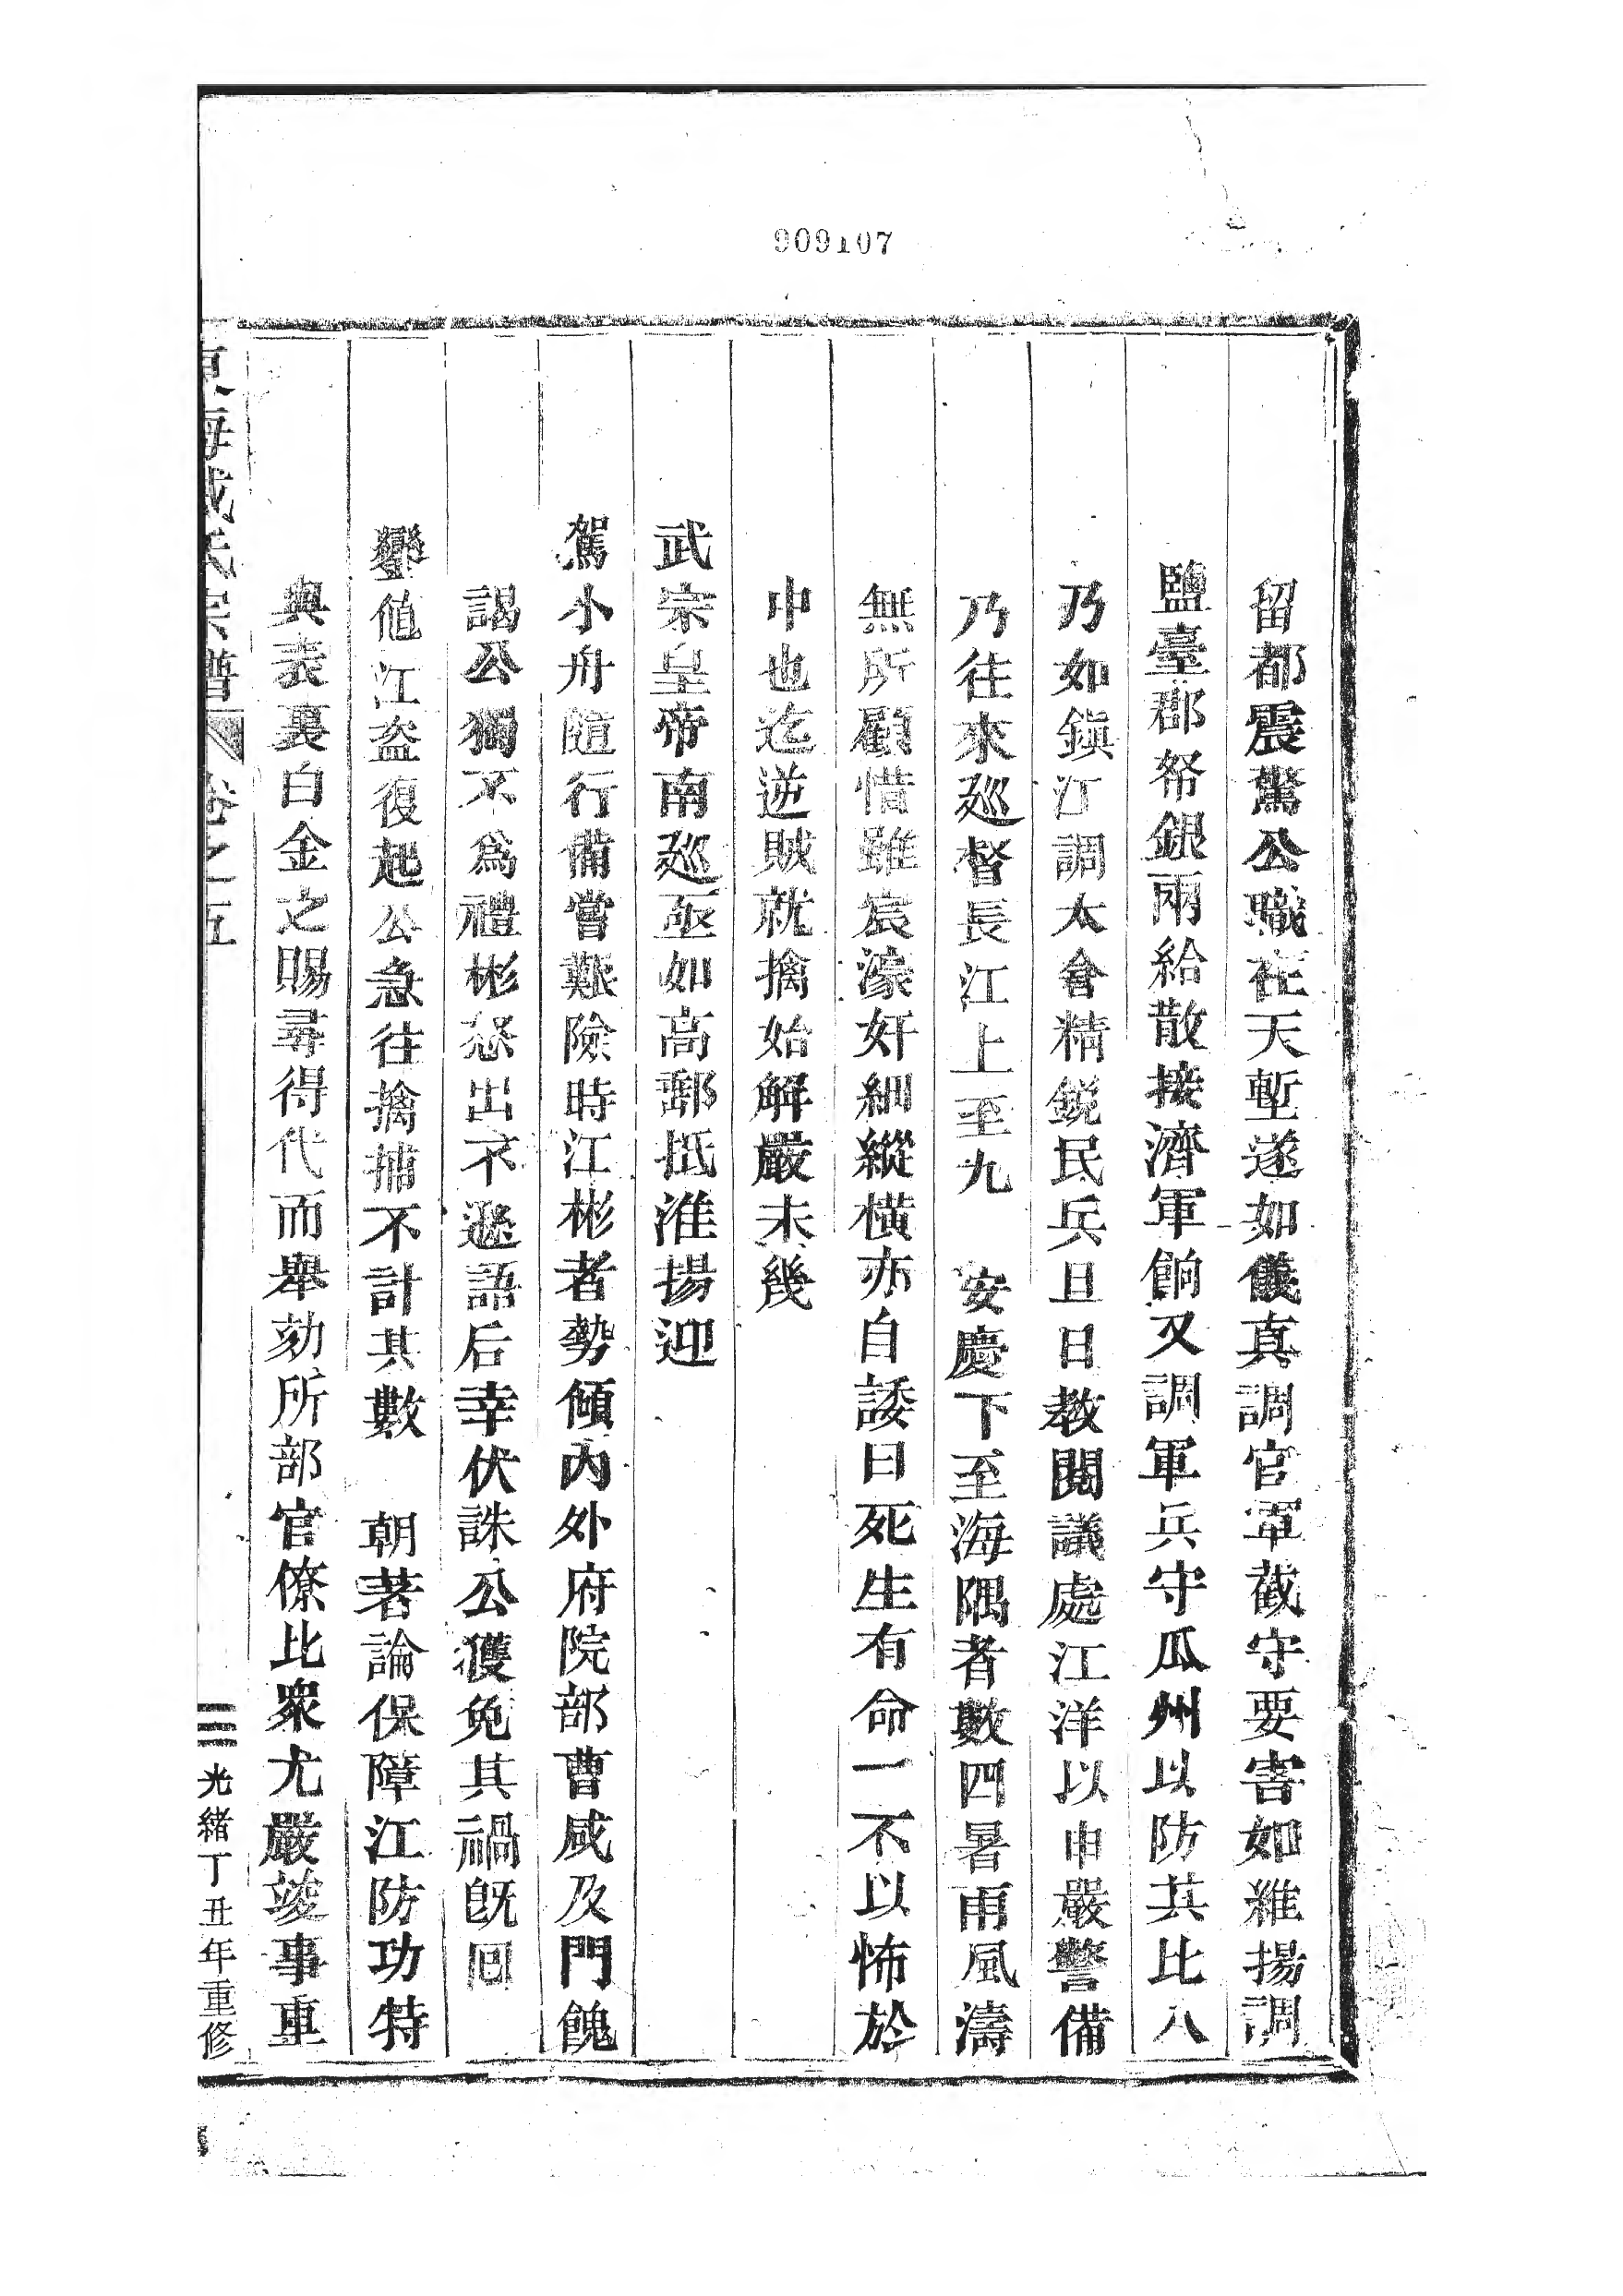 909107
留都震驚公職在天塹遂如儀真調官軍截守要害如維揚調
鹽臺郡帑銀兩給散接濟軍餉又調軍兵守瓜州以防其比八
乃如鎭江調太會精銳民兵旦日教閱議處江洋以申嚴警備
乃往來廵督長江上至九　安慶下至海隅者數四暑雨風濤
無所顧惜雖宸濠奸細縱橫亦自諉曰死生有命一不以怖於
中也迄逆賊就擒始解嚴未幾
武宗皇帝南廵亟如高郵抵淮揚迎
駕小舟隨行備嘗艱險時江彬者勢傾內外府院部曹咸及門餽
謁公獨不爲禮彬怒出不遜語后幸伏誅公獲免其禍旣回
鑾值江盜復起公急往擒捕不計其數　朝著論保障江防功特
典表裏白金之賜尋得代而舉劾所部官僚比衆尤嚴竣事重
東海成氏宗譜 卷之五 三 光緒丁丑年重修